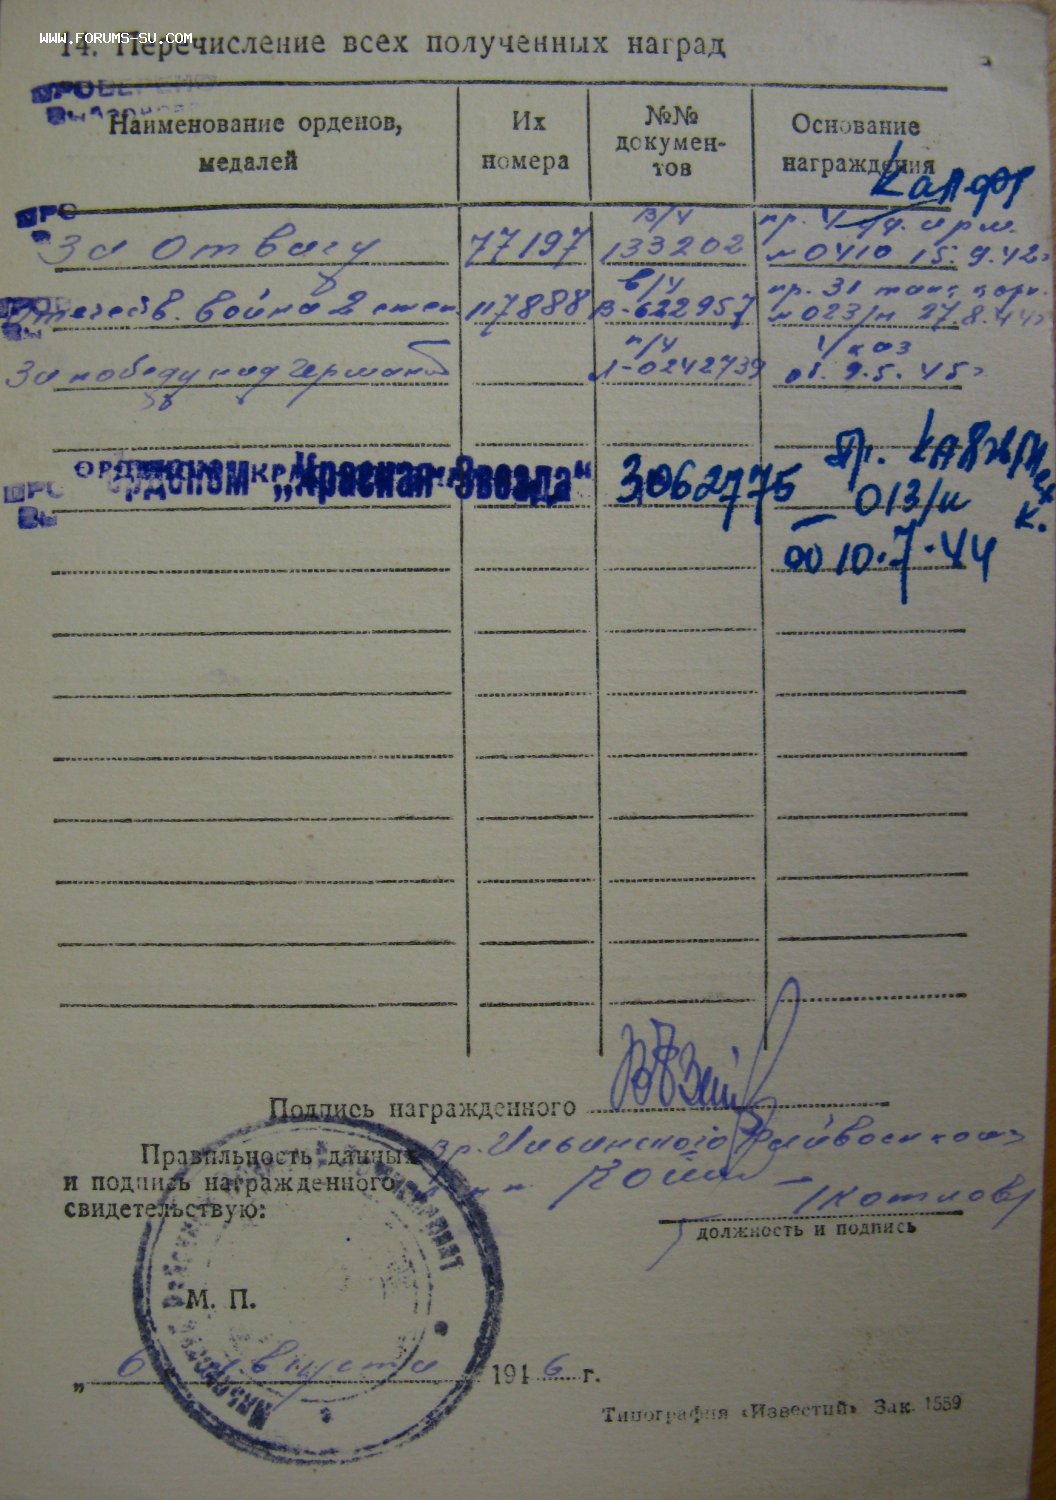 www.forums-su.com
14. Перечисление всех полученных наград
ПРОВЕРЕНО
Наименование орденов, медалей
Их номера
№№ докумен-тов
Основание награждения
ПРО
За отвагу 77197 в/у 133202 пр. 4 уд. арм. №0410 15.9.42г
Отечеств. война 2 степ. 117888 в/у В-622957 пр. 31 танк. корп. №023/н 27.8.44г
За победу над Германией п/у Л-0242739 указ от 9.5.45г
ПРО
Вы
орденом „Красная Звезда“ 3062775 Пр. 013/н
от 10.7.44
Подпись награжденного
Правильность данных
и подпись награжденного
свидетельствую:
Ильинского Райвоенком
Котлов
должность и подпись
М. П.
„6 августа 1946 г.
Типография «Известий» Зак. 1559